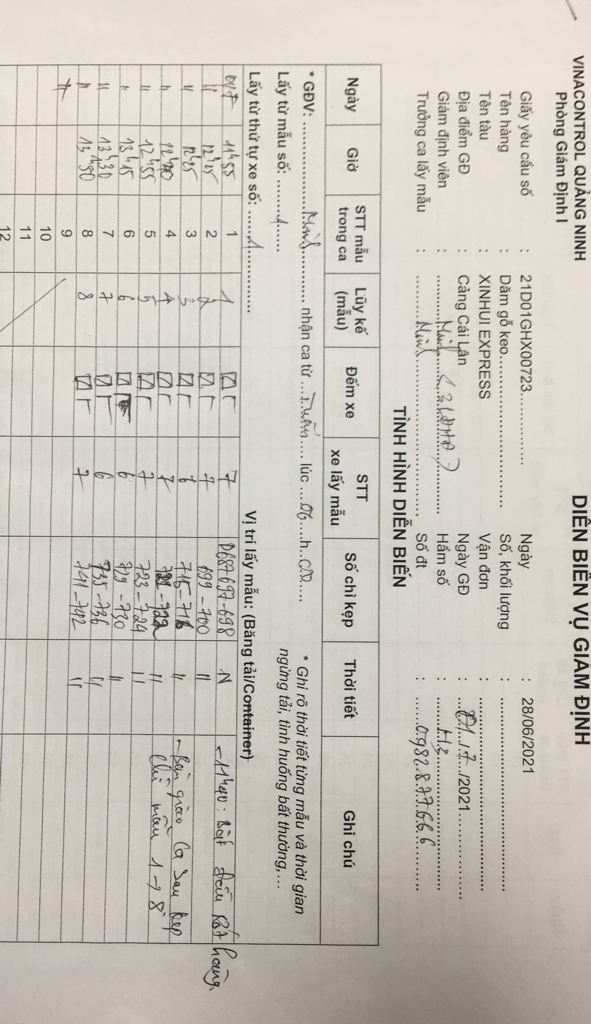 VINACONTROL QUẢNG NINH
Phòng Giám Định I
DIỄN BIẾN VỤ GIÁM ĐỊNH
Giấy yêu cầu số : 21D01GHX00723............... Ngày : 28/06/2021
Tên hàng : Dăm gỗ keo............... Số, khối lượng : ...............
Tên tàu : XINHUI EXPRESS Vận đơn : ...............
Địa điểm GĐ : Cảng Cái Lân Ngày GĐ : 01/7/2021
Giám định viên : Minh Hầm số : H3
Trưởng ca lấy mẫu : Minh Số đt : 0982.877666
TÌNH HÌNH DIỄN BIẾN
* GĐV: Minh nhận ca từ Tuấn lúc 06 h 00
* Ghi rõ thời tiết từng mẫu và thời gian
Lấy từ mẫu số: 1
ngừng tải, tình huống bất thường,...
Lấy từ thứ tự xe số: 1 Vị trí lấy mẫu: (Băng tải/Container)
Ngày Giờ STT mẫu trong ca Lũy kế (mẫu) Đếm xe STT xe lấy mẫu Số chì kẹp Thời tiết Ghi chú
01/7 11h55 1 1 7 697-698 N - 11h40: Bắt đầu rót hàng.
" 2 2 7 699-700 "
" 12h25 3 3 6 715-716 " - Bàn giao
" 12h40 4 4 7 " chì mẫu 1→8
" 12h55 5 5 7 723-724 "
" 13h15 6 6 6 729-730 "
" 13h30 7 7 6 735-736 "
" 8 8 7 741-742 "
9
10
11
12